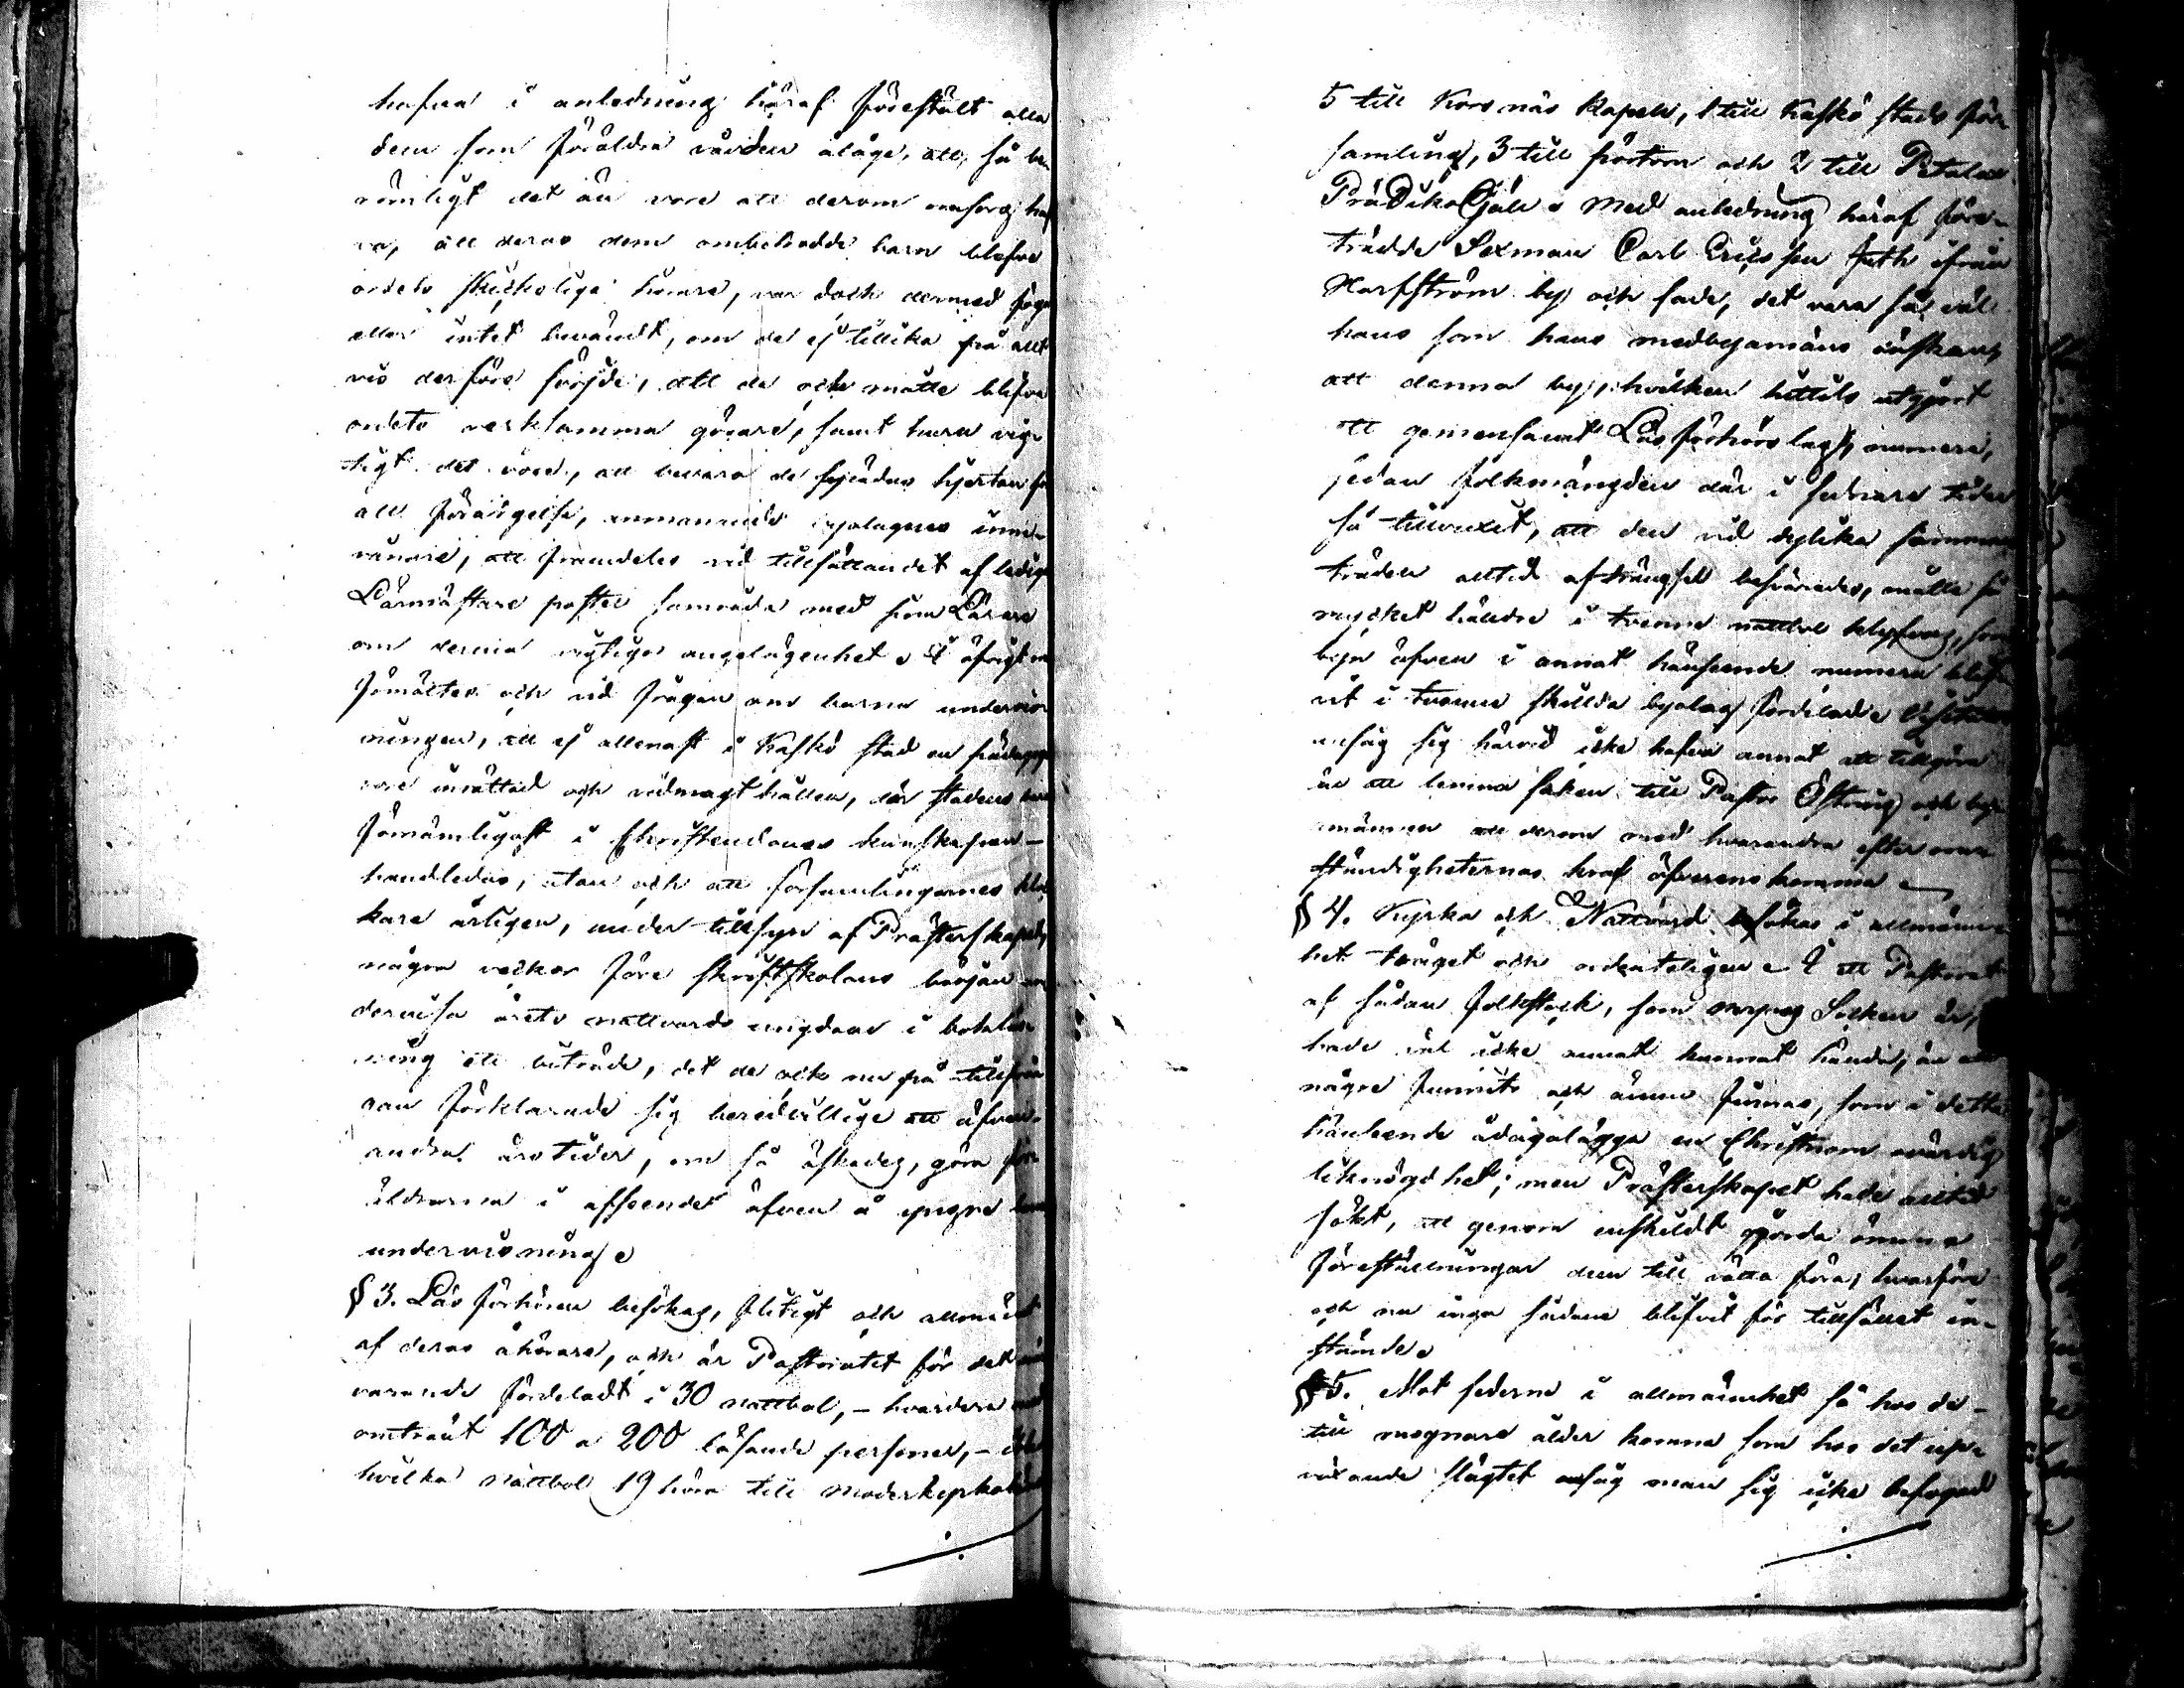 hafva i anledning häraf förestält alla
dem som föräldra vården ålåge, att, så be-
römligt det än vore att derom omsorg haf
va, att deras dem ombetrodde barn blefve
ordets skickelige hörare, var doch dermed föga
eller intet bevändt, om de ej tillika på allt
vis derföre sörjde, att de och måtte blifva
ordets verksamma görare, samt huru vig-
tigt det vore, att bevara de spädas hjertan för
all förargelse, anmanande byalagens inne-
vånare, att framdeles vid tillsättandet af ledige
Läromästare poster samråda med sine Lärare
om denna vigtiga angelägenhet. I öfrigt an
förmältes och vid frågan om barna undervis-
ningen, att ej allenast i Kaskö stad en pædagogie
vore inrättad och vidmagthållen, där stadens barn
förnämligast i Christendoms kunskapen -
handledas, utan och att församlingarnes kloc
kare årligen, under tillsyn af Prästerskapet,
några veckor före skriftskolans början un
dervisa årets nattvards ungdom i
ning till biträde, det de ock nu på tillfrå
gan förklarade sig beredvillige att äfven
andra årstider, om så äskades, göra för
äldrarna i afseende äfven å yngre barns
undervisning.
§ 3. Läs förhören besökas, flitigt och allmänt
af deras åhörare, och är Pastoratet för det när
varande fördeladt i 30 nattbol, - hvardera med
omkring 100 a 200 läsande personer, - af
hvilka nattbol 19 höra till moderkyrkan
5 till Korsnäs Kapell, 1 till Kaskö stads för
samling, 3 till Pörtom och 2 till Petalax
Prädiko Gäll. Med anledning häraf före-
trädde Sexman Carl Ericsson Juth ifrån
Harfström by och sade, det vara så väl
hans som hans medbyamäns önskan,
att denna by, hvilken hittils utgjort
ett gemensamt Läs förhörs lag, nummera,
sedan folkmängden där i sednare tider
så tillvuxit, att den vid dylika samman
träden alltid af trängsel besvärades, måtte så
mycket hälldre i tvenne nattbol klyfvas, som
byn äfven i annat hänseende numera blif
vit i tvenne skillda byalag fördelad.
ansåg sig härvid icke hafva annat att tillgöra
än att lemna saken till Pastor Östring och bya
männen att derom med hvarandra efter om
ständigheternas kraf öfverens komma.
§ 4. Kyrka och Nattvard besökas i allmän-
het troget och ordenteligen. I ett Pastorat
af sådan folkstock, som Nerpes Socken är,
hade väl icke annat kunnat hända, än att
någre funnits och ännu finnas, som i detta
hänseende ådagalägga en Christnom ovärdig
liknögdhet; men Prästerskapet hade alltid
sökt, att genom enskildt gjorda ömma
föreställningar dem till rätta föra, hvarföre
och nu inga sådane blifvit för tillfället in-
stämde.
§ 5. Mot sederne i allmänhet så hos de -
till mognare ålder komne som hos det upp-
växande slägtet ansåg man sig icke befogad